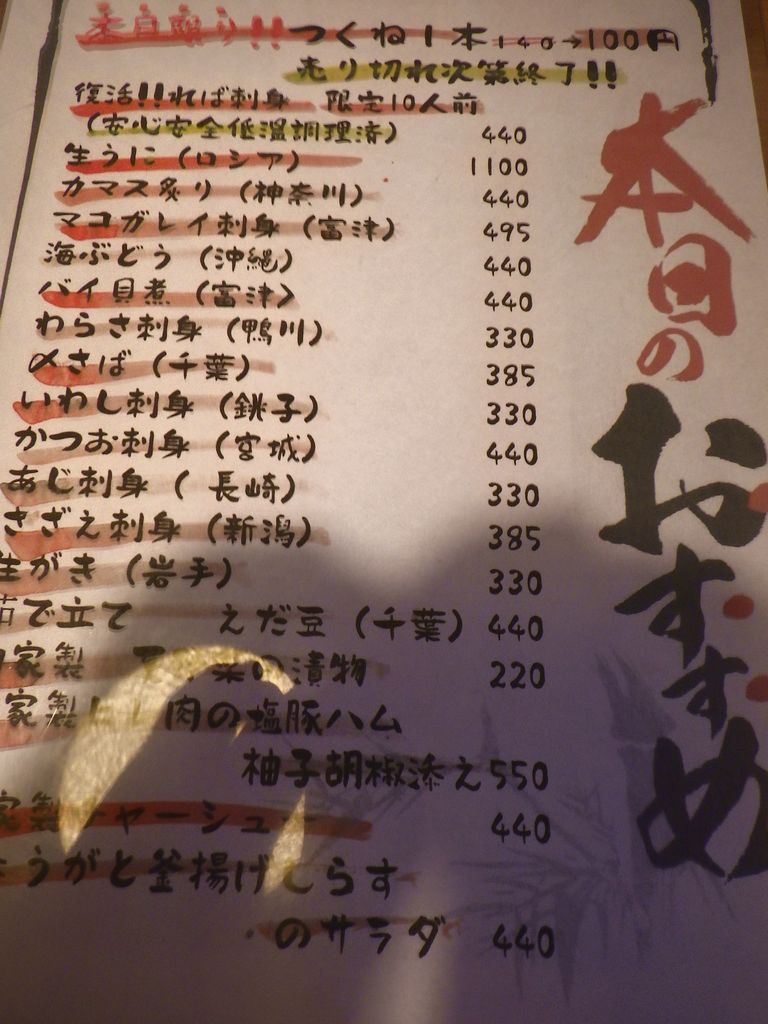 本日のおすすめ
本日限り!!つくね1本140→100円
売り切れ次第終了!!
復活!!ればば刺身 限定10人前
(安心安全低温調理済) 440
生うに(ロシア) 1100
カマス炙り(神奈川) 440
マコガレイ刺身(富津) 495
海ぶどう(沖縄) 440
バイ貝煮(富津) 440
わらさ刺身(鴨川) 330
〆さば(千葉) 385
いわし刺身(銚子) 330
かつお刺身(宮城) 440
あじ刺身(長崎) 330
さざえ刺身(新潟) 385
生がき(岩手) 330
茹で立て えだ豆(千葉) 440
家製 の漬物 220
家製 肉の塩豚ハム
柚子胡椒添え550
家製チャーシュー 440
うがと釜揚げしらす
のサラダ 440